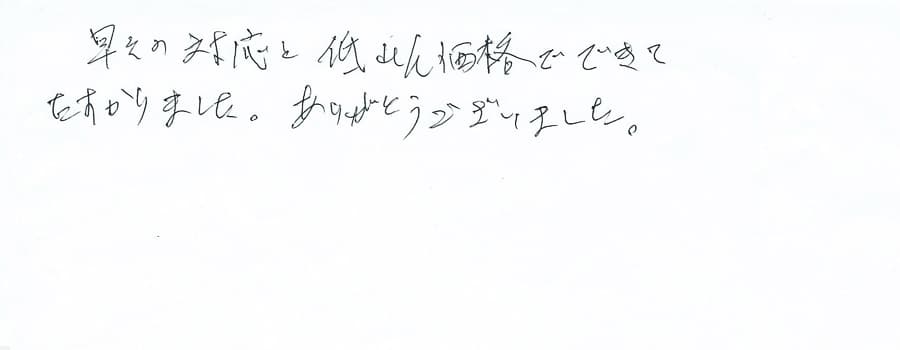 早その対応と低れん価格でできて
たすかりました。ありがとうございました。